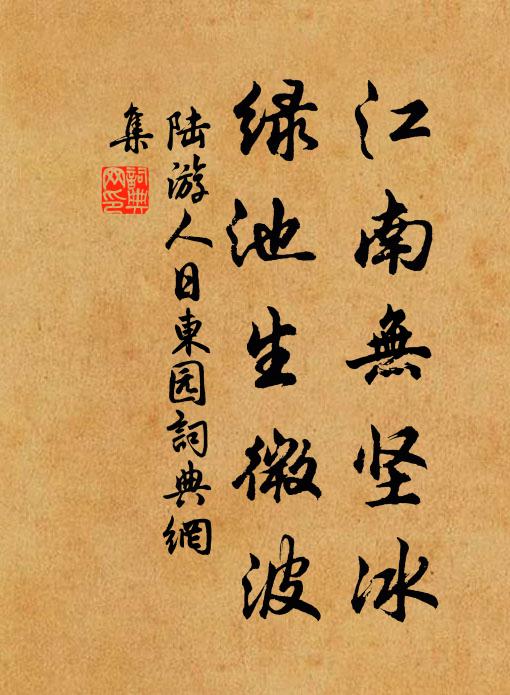 江南無坚冰
绿池生微波
陆游人日東园詞典網
集
詞典
网印